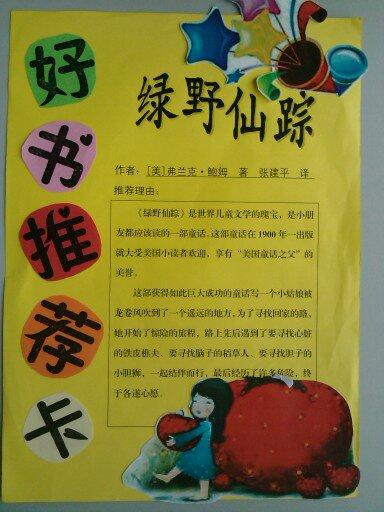 好书推荐卡
绿野仙踪
作者：[美]弗兰克·鲍姆 著 张建平 译
推荐理由：
《绿野仙踪》是世界儿童文学的瑰宝，是小朋
友都应该读的一部童话。这部童话在1900年一出版
就大受美国小读者欢迎，享有“美国童话之父”的
美誉。
这部获得如此巨大成功的童话写一个小姑娘被
龙卷风吹到了一个遥远的地方，为了寻找回家的路，
她开始了惊险的旅程，路上先后遇到了要寻找心脏
的铁皮樵夫、要寻找脑子的稻草人、要寻找胆子的
小胆狮，一起结伴而行，最后经历了许多危险，终
于各遂心愿。